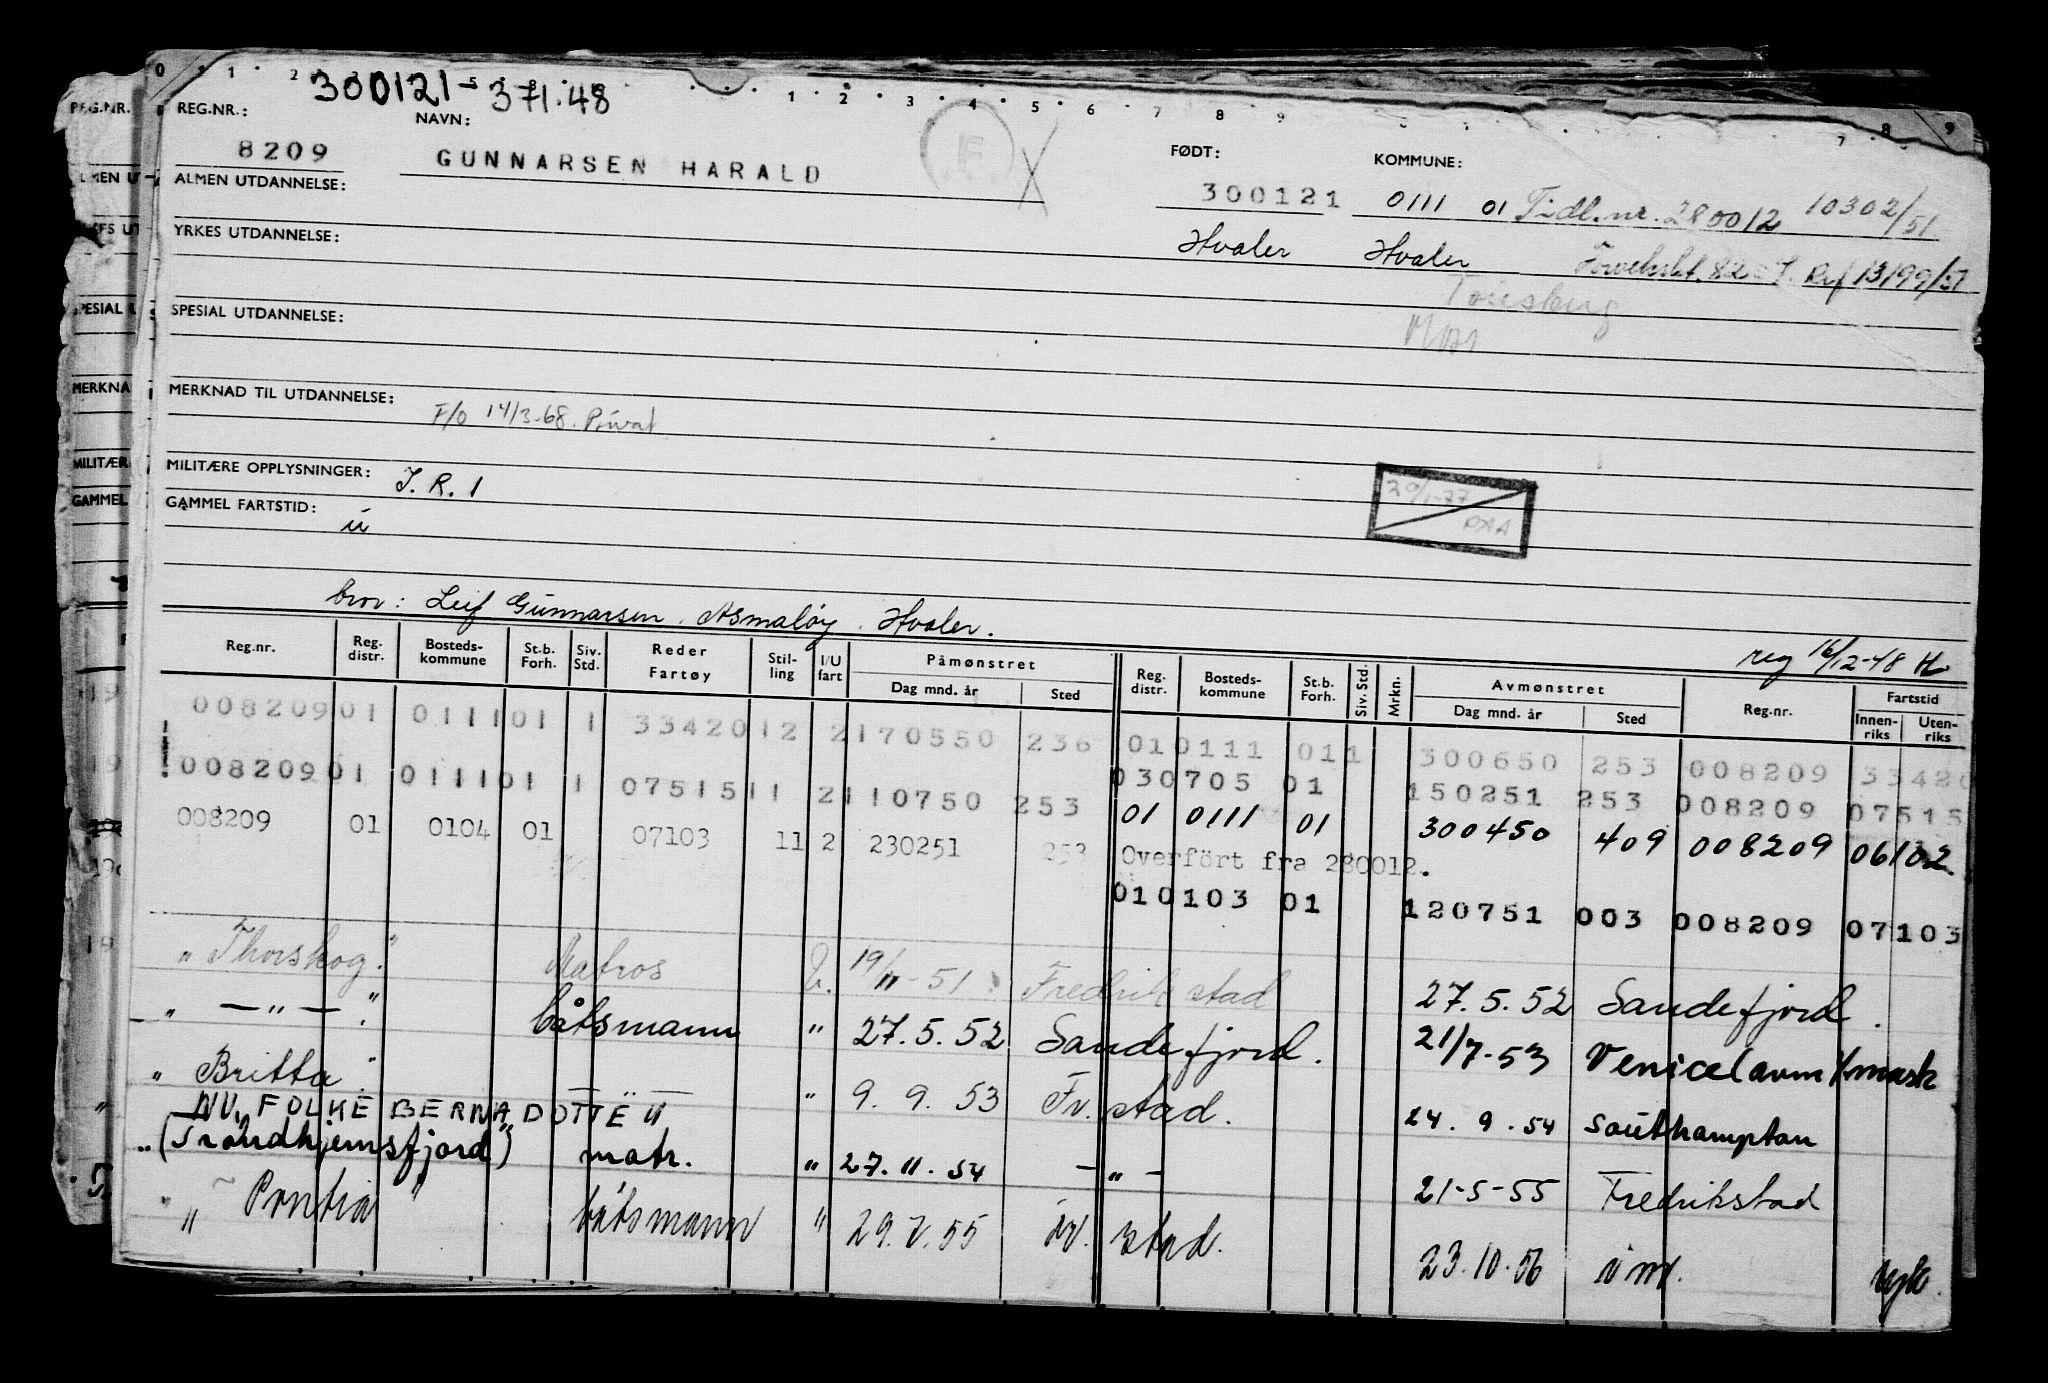 300121-37148
REG.NR.: NAVN: FØDT: KOMMUNE:
8209 GUNNARSEN HARALD 300121 0111 01 Tidl.nr. 280012 10302/51
ALMEN UTDANNELSE:
Hvaler Hvaler 13199/51
YRKES UTDANNELSE:
SPESIAL UTDANNELSE:
MERKNAD TIL UTDANNELSE: F/O 14/3-68. Privat
MILITÆRE OPPLYSNINGER: I.R.1
29/1-77
GAMMEL FARTSTID: u
bror: Leif Gunnarsen. Asmaløy. Hvaler.
reg 16/12-48
Reg.nr. Reg. distr. Bosteds-kommune St.b. Forh. Siv. Std. Reder Fartøy Stil-ling I/U fart Påmønstret Dag mnd. år Sted Reg. distr. Bosteds-kommune St.b. Forh. Siv. Std. Mrkn. Avmønstret Dag mnd. år Sted Reg.nr. Fartstid Innen-riks Uten-riks
008209 01 0111 01 1 33420 12 2 170550 236 01 0111 01 1 300650 253 008209 33420
008209 01 0111 01 1 07515 11 2 110750 253 03 0705 01 150251 253 008209 07515
01 0111 01 300450 409 008209 06102
008209 01 0104 01 07103 11 2 230251 253 Overført fra 280012.
01 0103 01 120751 003 008209 07103
"Thorskog." Matros U. 19/11-51 Fredrikstad 27.5.52 Sandefjord.
" — " — " båtsmann " 27.5.52 Sandefjord. 21/7-53 Venice (avm
"Britta" — " — " 9.9.53 Fr.stad. 24.9.54 Southampton
NU "FOLKE BERNADOTTE"
" (Trondhjemsfjord") matr. " 27.11.54 — " — 21-5-55 Fredrikstad
" båtsmann " 29.7.55 Fr. stad. 23.10.56